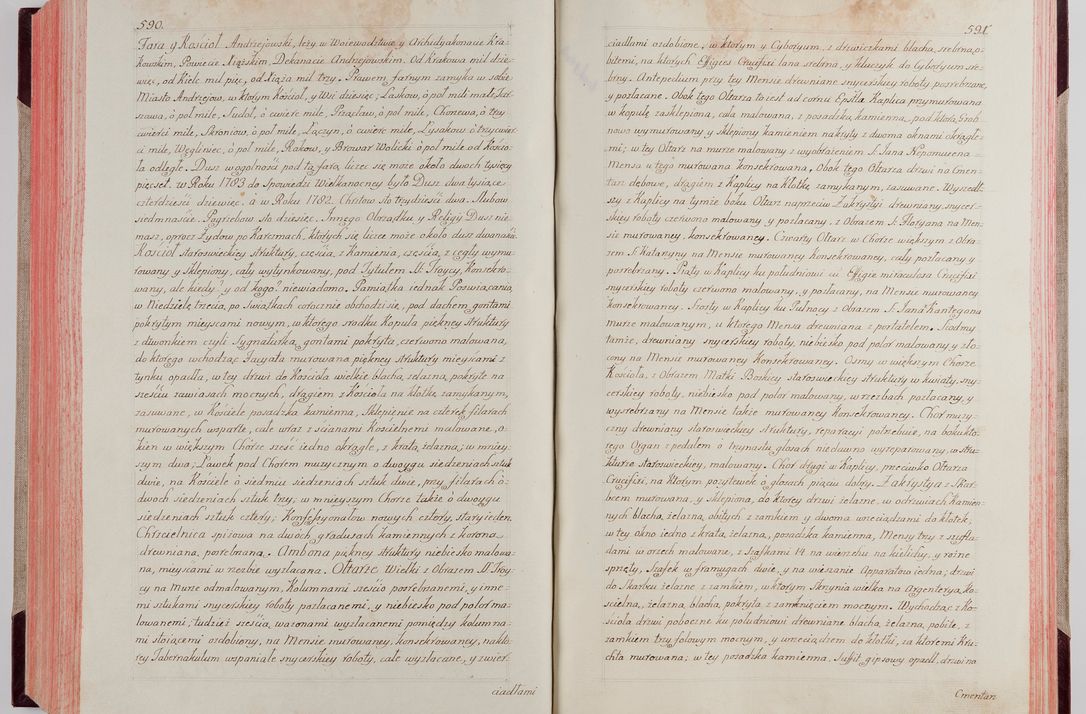 590.
Fara y Kościoł Andrzejowski, leży w Woiewodztwie y Archidyakonacie Kra-
kowskim, Powiecie Xiążskim, Dekanacie Andrzejowskim. Od Krakowa mil dzie-
więć, od Kielc mil pięć, od Xiąża mil trzy. Prawem farnym zamyka w sobie
Miasto Andrzejow, w ktorym Kościoł, y Wsi dziesięc; Laskow, ó pol mili mała,
sława, ó pol mile, Sudoł, ó cwierć mile, Przęsław, ó pol mile, Chorzewa, ó trzy
cwierci mile, Skroniow, ó pol mile, Łączyn, ó cwierć mile, Łysakow ó trzy cwier-
ci mile, Węgliniec, ó pol mile, Rakow, y Browar Wolicki ó pol mile od Kościo-
ła odległe. Dusz wogolności pod tą farą liczec się może około dwoch tysięcy
pięcset. w Roku 1783 do Spowiedzi Wielkanocney było Dusz dwa tysiące
czterdzieści dziewięc. a w Roku 1782. Chrztow sto trzydzieści dwa. Slubow
siedmnaście. Pogrzebow sto dziesięc. Innego Obrządku y Religij Dusz nie-
masz, oprocz Żydow po Karczmach, ktorych się liczec może około dusz dwanaście.
Kościoł staroswieckiey struktury, częścią z Kamienia, częścią, z cegły wymu-
rowany y Sklepiony, cały wytynkowany, pod Tytułem SS. Troycy, Konsekro-
wany, ale kiedy? y od kogo? niewiadomo. Pamiątka iednak Poswiącania,
w Niedzielę trzecią, po Swiątkach corocznie obchodzi się, pod dachem, gontami
pokrytym mieyscami nowym, w ktorego srodku Kopuła piękney struktury
z dzwonkiem czyli Sygnaturką, gontami pokryta, czerwono malowana,
do ktorego wchodząc Facyata murowana piękney struktury mieyscami z
tynku opadła, w tey drzwi do Kościoła wielkie blachą żelazną, pokryte na
sześciu zawiasach mocnych, drągiem z Kościoła na kłotkę zamykanym,
zasuwane, w Kościele posadzka kamienna, Sklepienie na czterech filarach
murowanych wsparte, całe wraz z ścianami Kościelnemi malowane, o-
kien w większym Chorze sześć iedno okrągłe, z kratą żelazną; w mniey-
szym dwa; Ławek pod Chorem muzycznym o dwoygu siedzeniach sztuk
dwie, na Kościele ó siedmiu siedzeniach sztuk dwie, przy filarach ó
dwoch siedzeniach sztuk trzy, w mnieyszym Chorze także ó dwoygu
siedzeniach sztuk cztery; Konfessyonałow nowych cztery, stary ieden.
Chrzcielnica spizowa na dwoch gradusach kamiennych z koroną
drewnianą, posrebrzaną. Ambona piękney struktury niebiesko malowa-
na, mieyscami w rzezbie wyzłacana. Ołtarze Wielki z Obrazem SS. Troy-
cy na Murze odmalowanym, Kolumnami sześcio posrebrzanemi, y inne-
mi sztukami snycerskiey roboty pozłacanemi, y niebiesko pod polor ma-
lowanemi; tudzież sześcią, wazonami wyzłacanemi pomiędzy kolumna-
mi stoiącemi ozdobiony, na Mensie murowaney, konsekrowaney, na kto-
rey Tabernakulum wspaniałe snycerskiey roboty, całe wyzłacane, y zwier-
ciadłami
591.
ciadłami ozdobione, w ktorym y Cyboryum, z drzwiczkami blachą, srebrną o-
bitemi, na ktorych Effigies Crucifixi lana srebrna, y kluczyk do Cyboryum sre-
brny. Antepedium przy tey Mensie drewniane snycerskiey roboty posrebrzane,
y pozłacane. Obok tego Ołtarza to iest ad cornu Epstlæ Kaplica przymurowana
w kopułę zasklepiona, cała malowana, z posadzką kamienną, pod ktorą Grob
nowo wymurowany y sklepiony kamieniem nakryty z dwoma oknami okrągłe-
mi; w tey Ołtarz na murze malowany z wyobrażeniem S. Jana Nepomucena
Mensa u tego murowana konsekrowana, Obok tego Ołtarza drzwi na Cmen-
tarz dębowe, drągiem z Kaplicy na kłotkę zamykanym, zasuwane. Wyszedł-
szy z Kaplicy na tymże boku Ołtarz naprzeciw Zakrystyi drewniany snycer-
skiey roboty czerwono malowany y pozłacany, z Obrazem S. Floryana na Men-
sie murowaney, konsekrowaney. Czwarty Ołtarz w Chorze większym z Obra-
zem S. Katarzyny na Mensie murowaney konsekrowaney, cały pozłacany y
posrebrzany. Piąty w Kaplicy ku południowi cũ Effigie miraculosa Crucifixi
snycerskiey roboty czerwono malowany, y pozłacany, na Mensie murowaney
konsekrowaney. Szosty w Kaplicy ku Pułnocy z Obrazem S. Jana Kantegona
murze malowanym, u ktorego Mensa drewniana z portatelem. Siodmy
tamże, drewniany snycerskiey roboty, niebiesko pod polor malowany y zło-
cony na Mensie murowaney Konsekrowaney. Osmy w większym Chorze
Kościoła, z Obrazem Matki Boskiey staroswieckiey struktury w kwiaty, sny-
cerskiey roboty, niebiesko pod polor malowany, w rzezbach pozłacany, y
wysrebrzany na Mensie także murowaney Konsekrowaney. Chor muzy-
czny drewniany staroswieckiey struktury, reparacyi potrzebuie, na boku kto-
rego Organ z pedałem ó trzynastu głosach niedawno wyreparowany, w stru-
kturze staroswieckiey, malowany. Chor drugi w Kaplicy, przeciwko Ołtarza
Crucifixi, na ktorym pozytywek ó głosach pięciu dobry. Zakrystya z Skar-
bcem murowana, y sklepiona, do ktorey drzwi żelazne, w odrzwiach Kamien-
nych blachą żelazną, obitych z zamkiem y dwoma wrzeciądzami do kłotek,
w tey okno iedno z kratą, żelazną, posadzka kamienna, Mensy trzy z szufla-
dami w orzech malowane, z Szafkami 14 na wierzchu na kielichy, y rożne
sprzęty, Szafek w framugach dwie, y na wieszanie Apparatow iedna; drzwi
do Skarbcu żelazne z zamkiem, w ktorym Skrzynia wielka na Argenterya Ko-
ścielną, żelazną, blachą, pokryta z zamknięciem mocnym. Wychodząc z Ko-
ścioła drzwi poboczne ku południowi drewniane blachą, żelazną, pobite, z
zamkiem trzy folowym mocnym, y wrzeciądzem do kłotki, za ktoremi Kru-
chta murowana; w tey posadzka kamienna, Suffit gipsowy opadł, drzwi na
Cmentarz